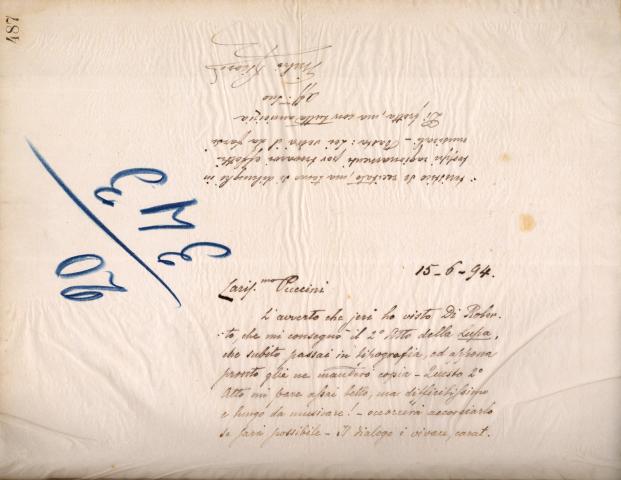 487
15-6-94.
Caris.mo Puccini
L'avverto che jeri ho visto Di Rober-
to, che mi consegnò il 2° Atto della Lupa,
che subito passai in tipografia, ed appena
pronto gliene manderò copia - Questo 2°
Atto mi pare assai bello, ma difficilissimo
e lungo da musicare! - occorrerà accorciarlo
se sarà possibile - Il dialogo è vivace, carat-
teristico se recitato, ma temo di dilungarlo in
musicali - Basta: Lei vedrà il da farsi
Di fretta, ma con tutta amicizia
aff.mo suo
Giulio Ricordi
20/3 M 3